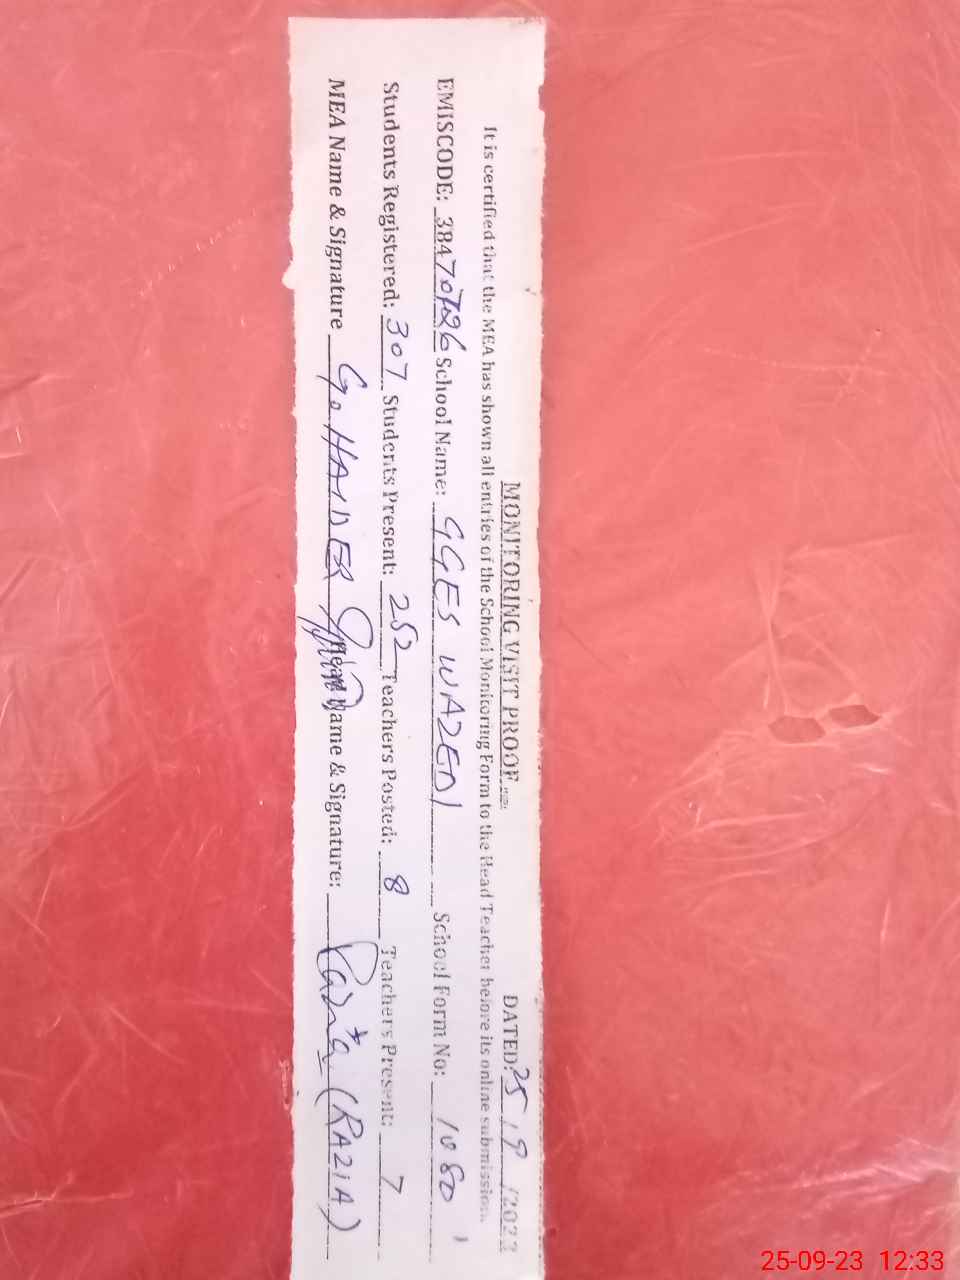 MONITORING VISIT PROOF DATED: 25/9/2022
It is certified that the MEA has shown all entries of the School Monitoring Form to the Head Teacher before its online submission.
EMISCODE: School Name: GGES WAZEDI School Form No: 1080
Students Registered: 307 Students Present: 252 Teachers Posted: 8 Teachers Present: 7
MEA Name & Signature G. HAIDER Head Name & Signature: Razia (RAZIA)
25-09-23 12:33